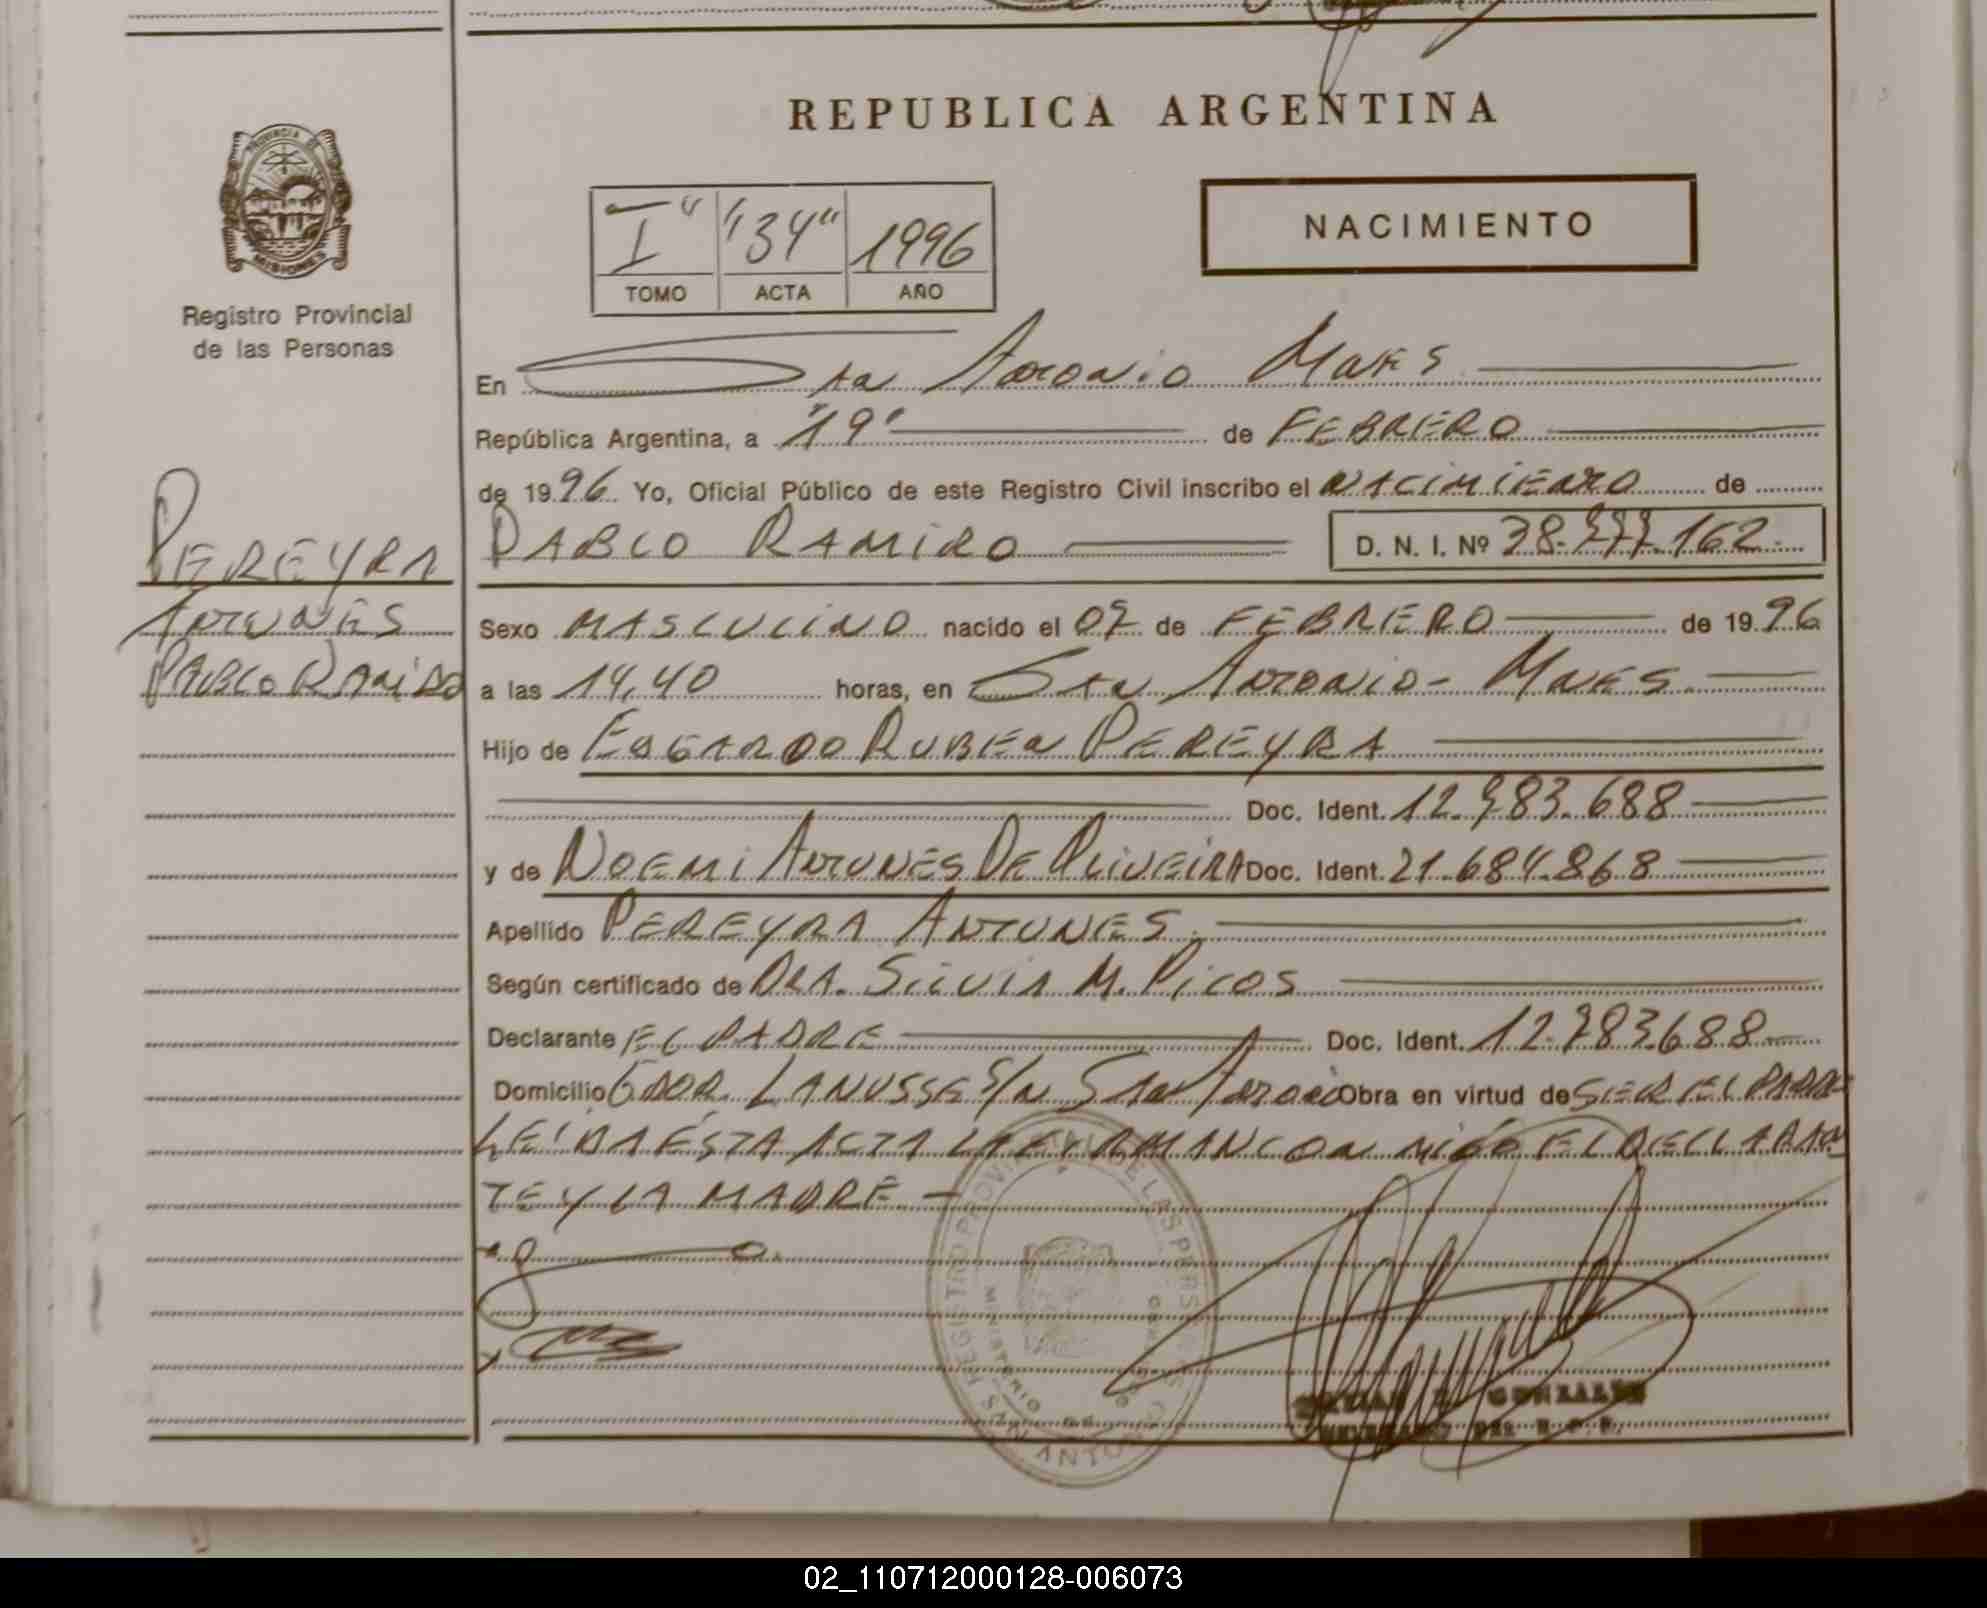 REPUBLICA ARGENTINA
PROVINCIA DE
MISIONES
Registro Provincial
de las Personas
I" "34" 1996
TOMO ACTA AÑO
NACIMIENTO
En San Antonio Mnes
República Argentina, a "19" de FEBRERO
de 1996 Yo, Oficial Público de este Registro Civil inscribo el NACIMIENTO de
PABLO RAMIRO D. N. I. Nº 38.777.162
PEREYRA
ANTUNES
PABLO RAMIRO
Sexo MASCULINO nacido el 07 de FEBRERO de 1996
a las 14,40 horas, en San Antonio - Mnes
Hijo de EDGARDO RUBEN PEREYRA
Doc. Ident. 12.783.688
y de NOEMI ANTUNES DE OLIVEIRA Doc. Ident. 21.684.868
Apellido PEREYRA ANTUNES
Según certificado de DRA. SILVIA M. PICOS
Declarante EL PADRE Doc. Ident. 12.783.688
Domicilio GDOR. LANUSSE S/N San Antonio Obra en virtud de SER EL PADRE
LEIDA ÉSTA ACTA LA FIRMAN CON MIGO EL DECLARAN
TE Y LA MADRE -
REGISTRO PROVINCIAL DE LAS PERSONAS
MINISTERIO DE GOBIERNO
SAN ANTONIO
GONZALEZ
DEL R.P.P.
02_110712000128-006073